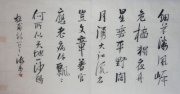 細草微風岸
危檣獨夜舟
星垂平野闊
月湧大江流名
豈文章著官
應老病休飄〻
何所似天地一沙鷗